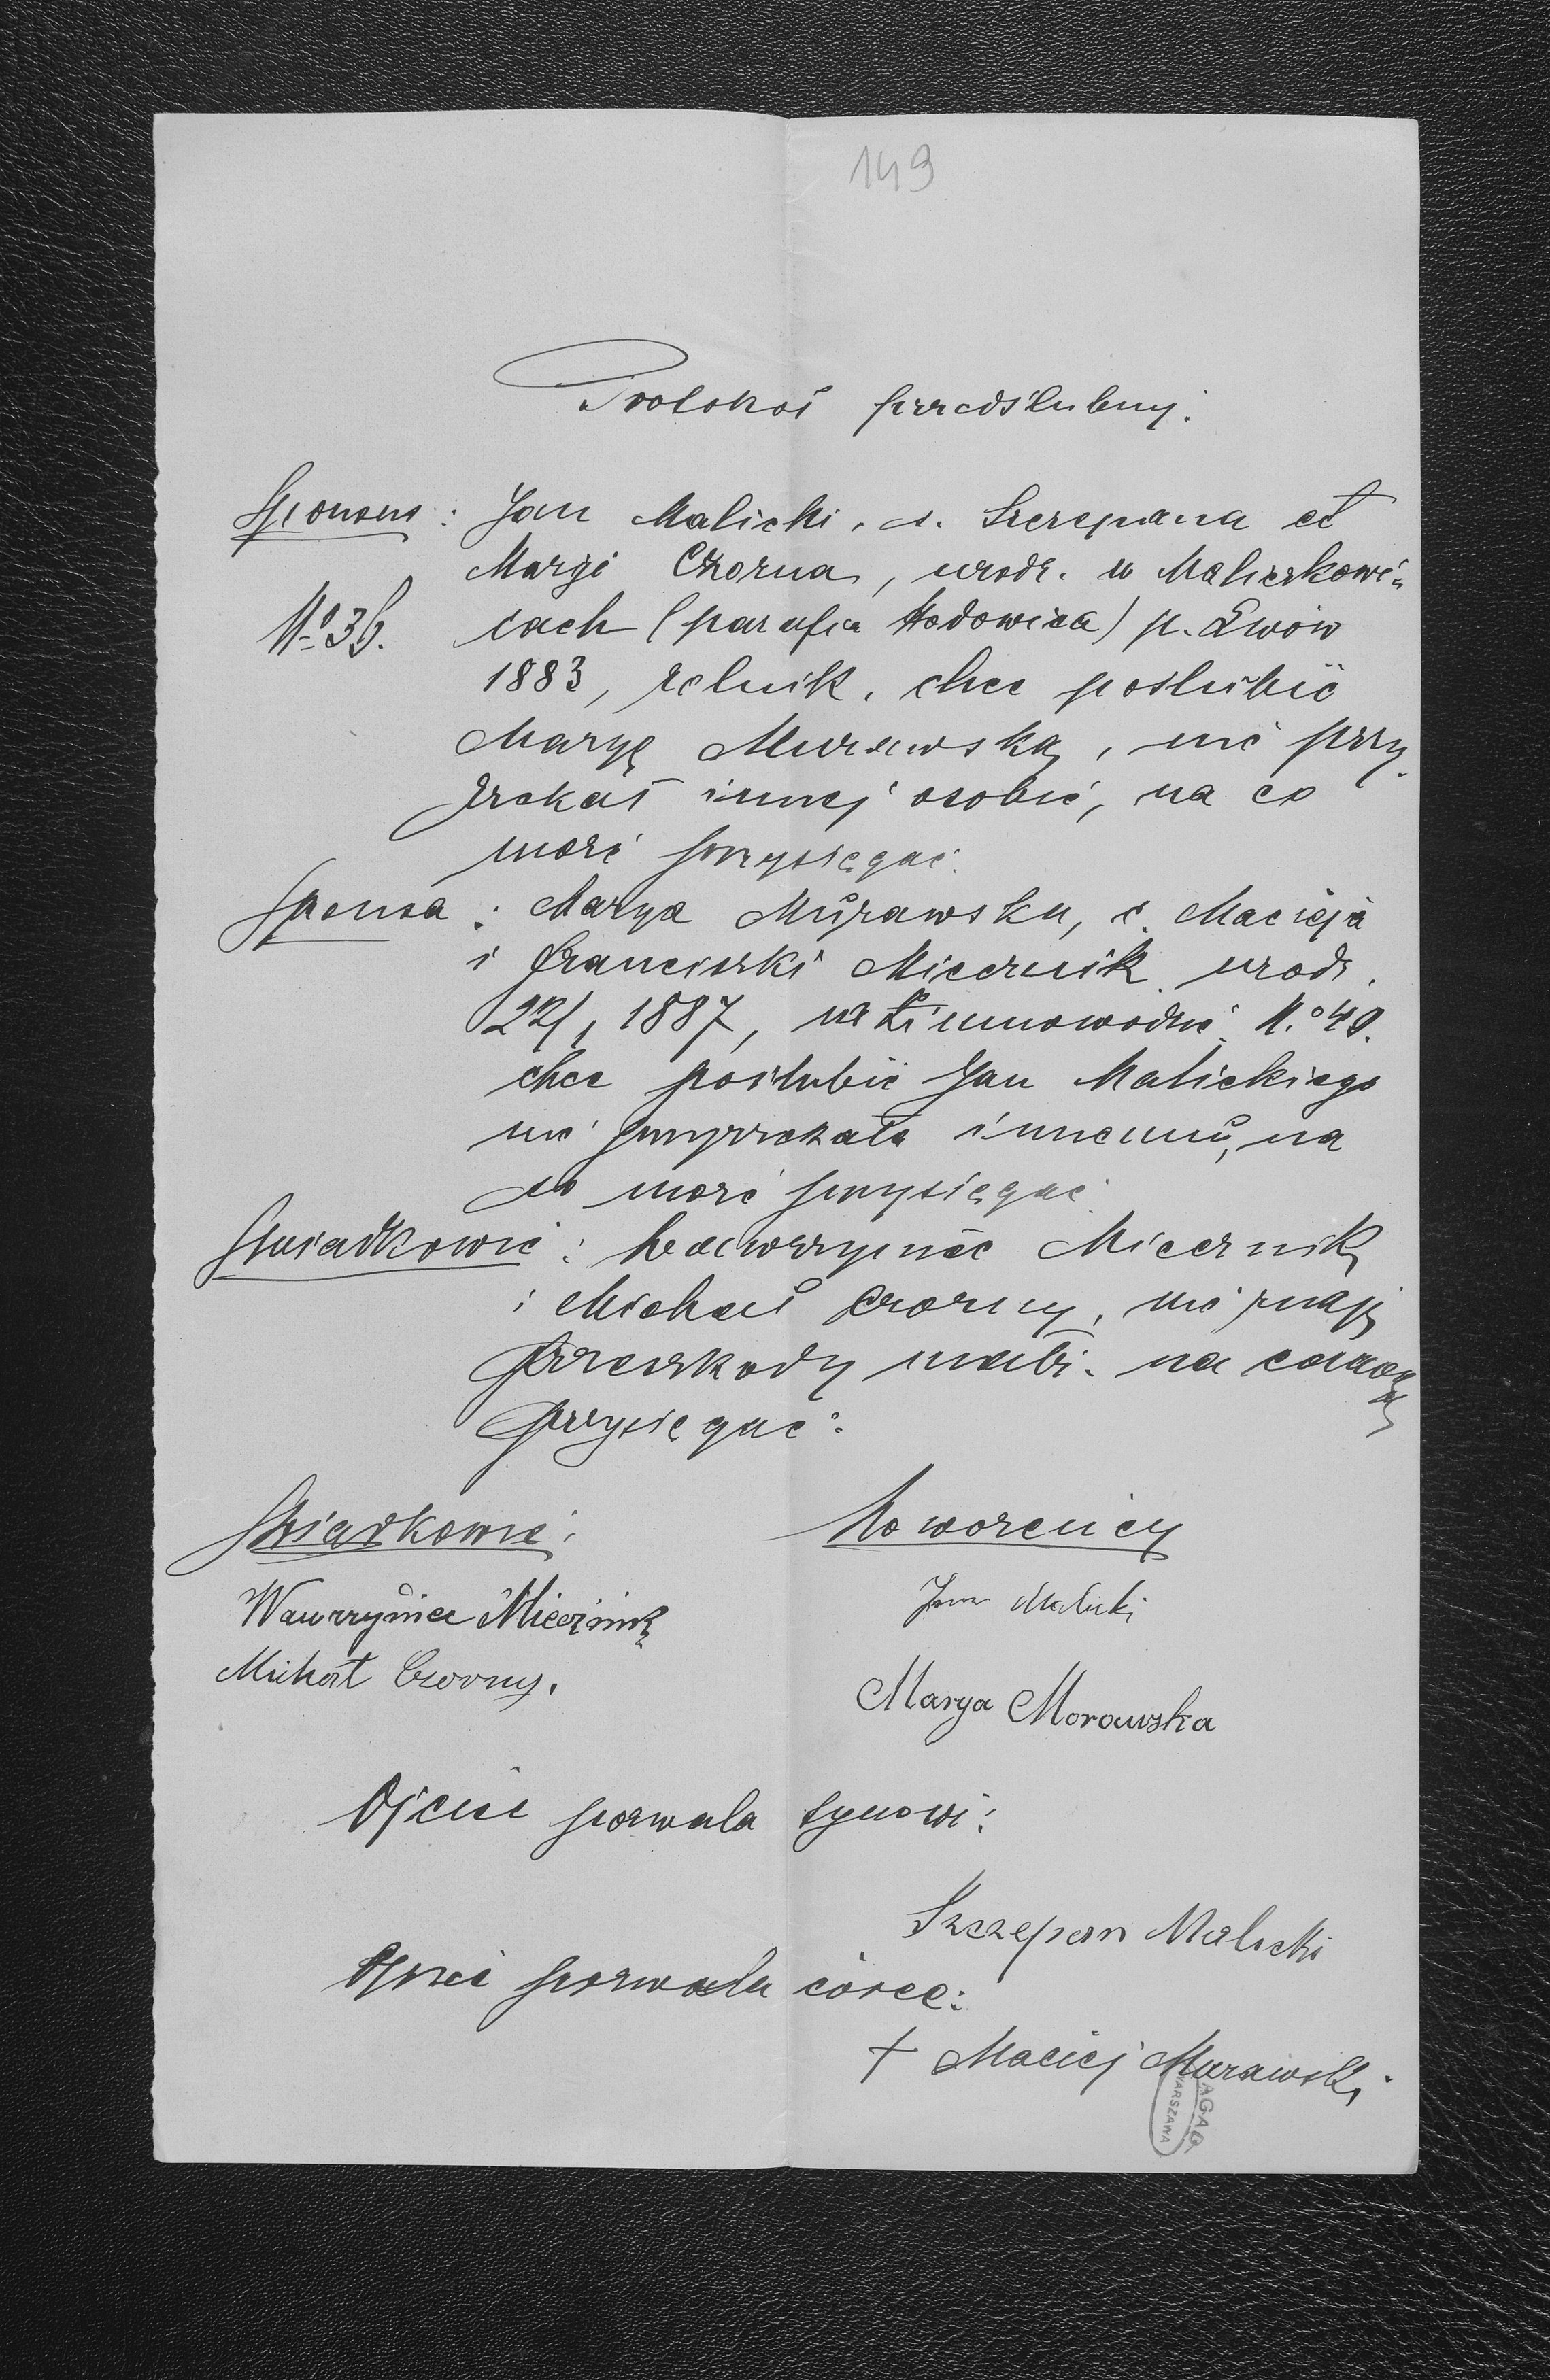 149
Protokół przedślubny.
Sponsus: Jan Malicki, s. Szczepana et
Maryi Czorna, urodz. w Maliczkowi-
Nº 36. cach (parafia Hodowica) p. Lwów
1883, rolnik, chce poślubić
Maryę Murawską, nie przy
rzekał innej osobie, na co
może przysięgać.
Sponsa: Marya Murawska, c. Macieja
i Franciszki Miecznik urodz.
22/1 1887, na Zimnowodzie Nº 49.
chce poślubić Jan Malickiego
nie przyrzekała innemu, na
co może przysięgać.
Świadkowie: Wawrzyniec Miecznik
i Michał Czorny, nie znają
przeszkody małż. na co mogą
przysięgać.
Świadkowie: Nowożeńcy
Wawrzyniec Mieciznik Jan Malicki
Michał Czorny. Marya Morawska
Ojciec pozwala synowi:
Szczepan Malicki
Ojciec pozwala córce:
+ Maciej Murawski
AGAD
WARSZAWA